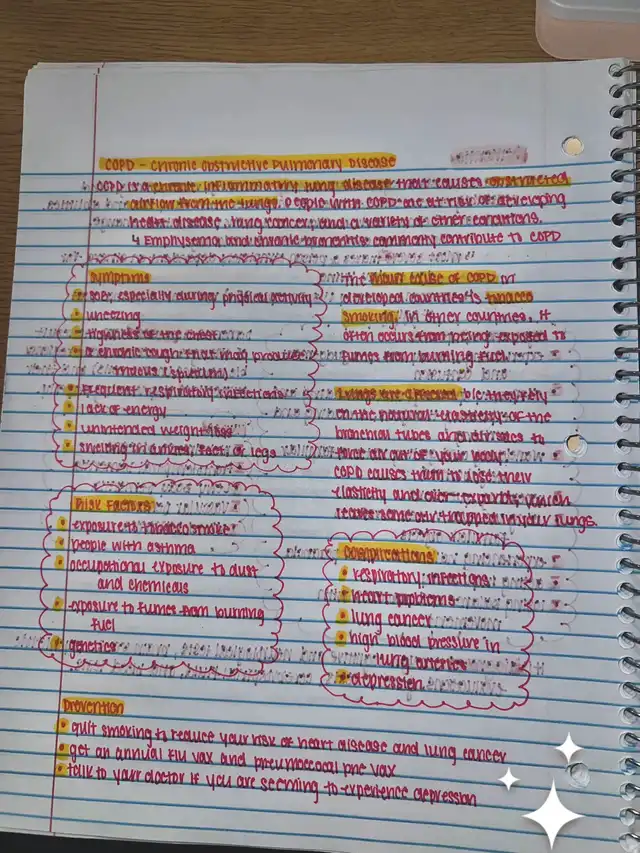 COPD - Chronic Obstructive Pulmonary Disease
COPD is a chronic inflammatory lung disease that causes obstructed
airflow from the lungs. People with COPD are at risk of developing
heart disease, lung cancer, and a variety of other conditions.
↳ Emphysema and chronic bronchitis commonly contribute to COPD
Symptoms
SOB, especially during physical activity
wheezing
tightness of the chest
a chronic cough that may produce
mucus (sputum)
frequent respiratory infections
lack of energy
unintended weight loss
swelling in ankles, feet, or legs
The main cause of COPD in
developed countries is tobacco
smoking. In other countries, it
often occurs from being exposed to
fumes from burning fuel.
Lungs are affected b/c they rely
on the natural elasticity of the
bronchial tubes and air sacs to
force air out of your body.
COPD causes them to lose their
elasticity and over-expand, which
leaves some air trapped in your lungs.
Risk Factors
exposure to tobacco smoke
people with asthma
occupational exposure to dust
and chemicals
exposure to fumes from burning
fuel
genetics
Complications
respiratory infections
heart problems
lung cancer
high blood pressure in
lung arteries
depression
Prevention
quit smoking to reduce your risk of heart disease and lung cancer
get an annual flu vax and pneumococcal pne vax
talk to your doctor if you are seeming to experience depression